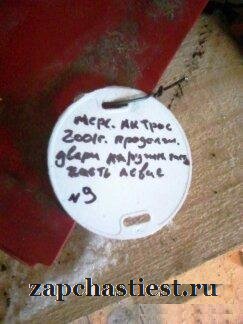 мерс. Актрос
2001г. продолж.
двери наружняя
часть левые
№9
zapchastiest.ru